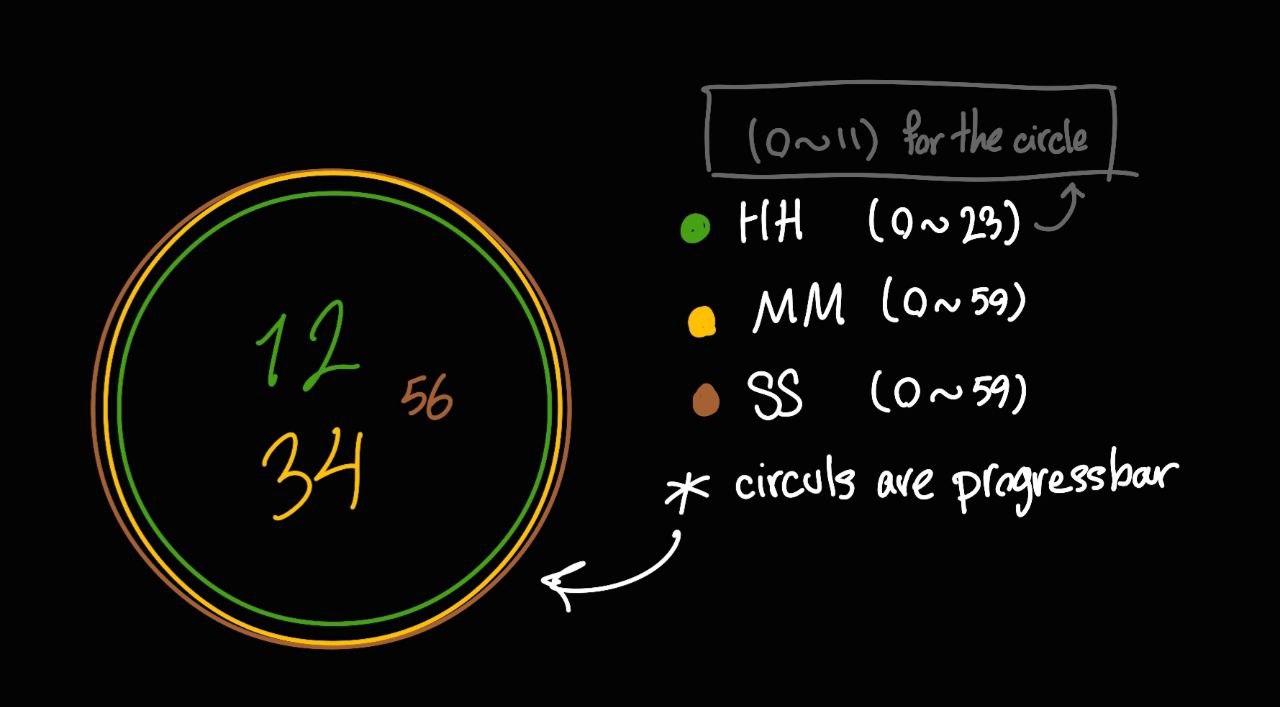 12
56
34
(0~11) for the circle
HH (0~23)
MM (0~59)
SS (0~59)
* circuls are progressbar